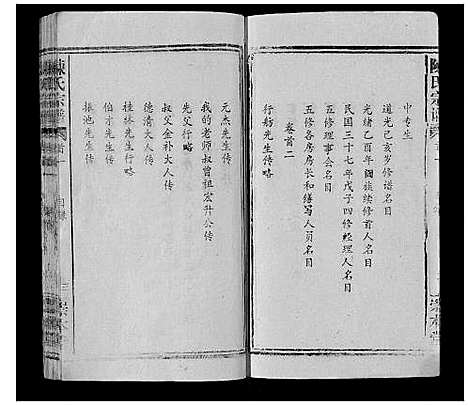 陳氏宗譜
中专生
道光己亥岁修谱名目
光绪乙酉年阖族续修首人名目
民国三十七年戊子四修经理人名目
五修理事会名目
五修各房房长和缮写人员名目
卷首二
行舫先生传略
元杰先生传
我的老师叔曾祖宏升公传
先父行略
叔父金补大人传
德清大人传
桂林先生行略
伯才先生传略
振池先生传
陳氏宗譜
卷首一
目錄
三